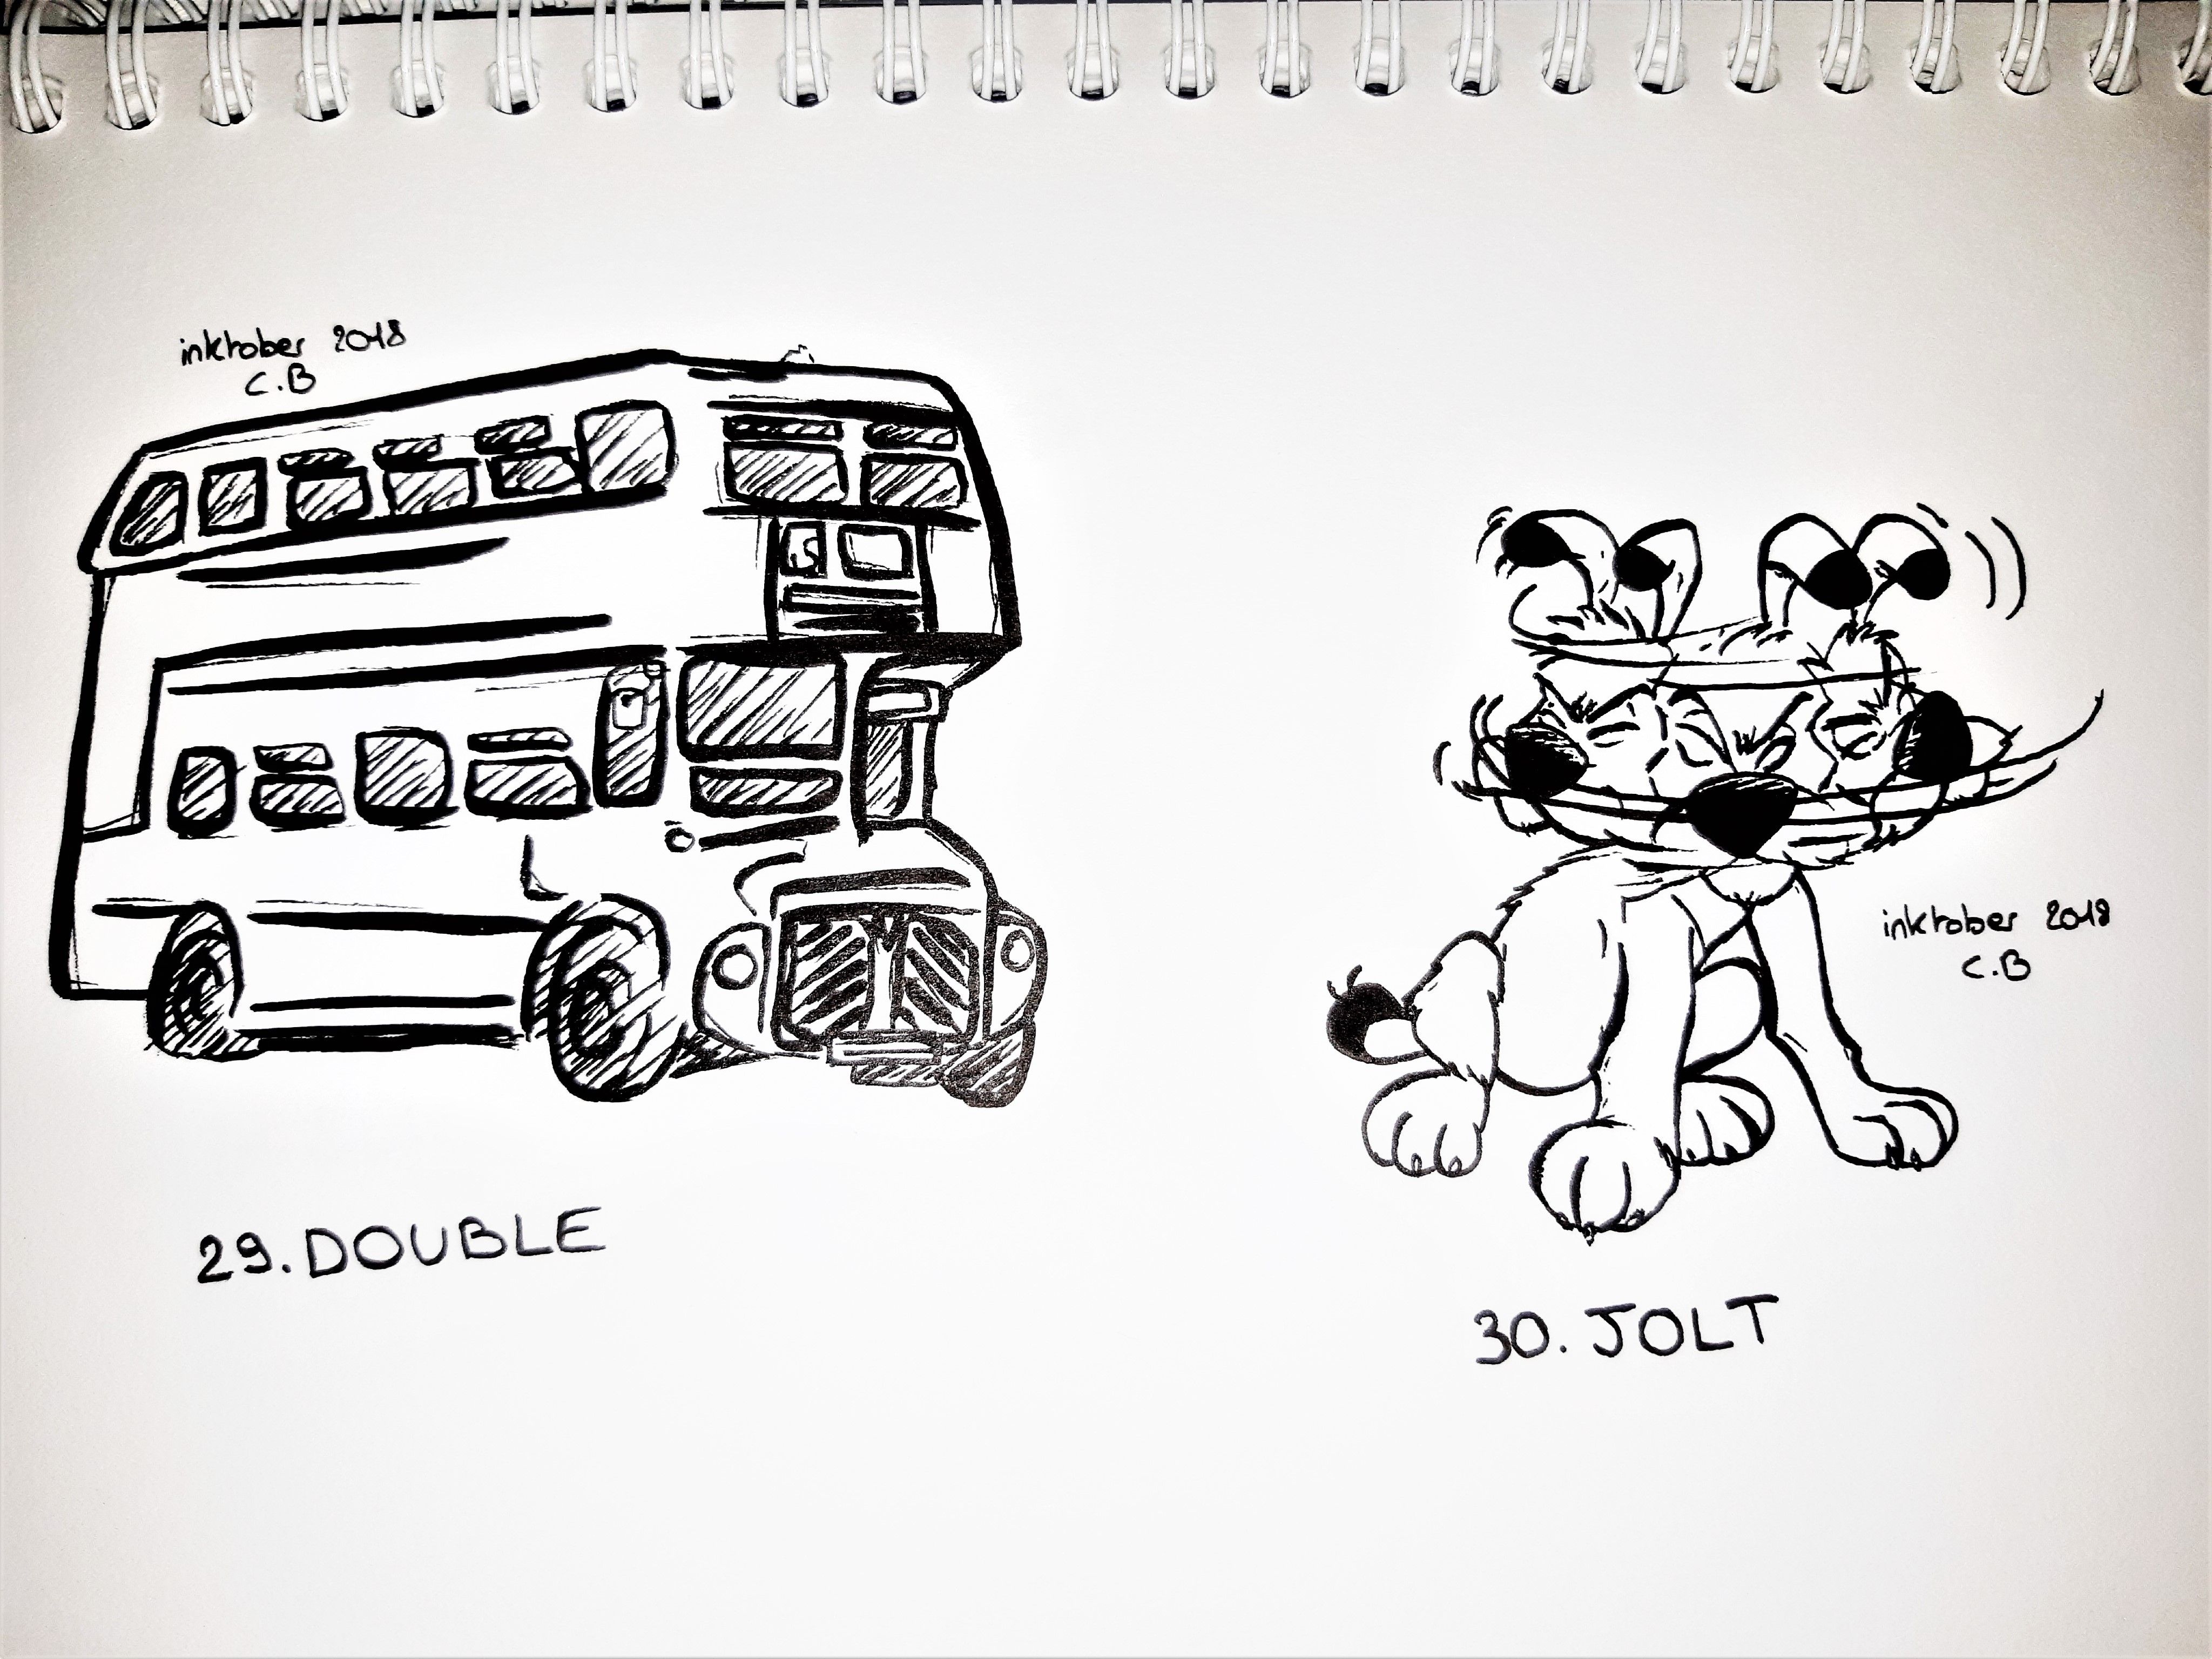 inktober 2018
C.B
29. DOUBLE
inktober 2018
C.B
30. JOLT